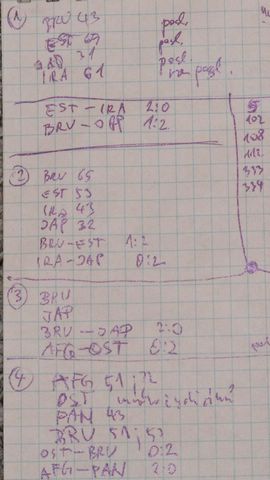 1
BRU 43 posl.
EST 69 posl.
JAP 31 posl.
IRA 61 posl.
EST-IRA 2:0
BRU-JAP 1:2
102
108
112
333
339
2
BRU 65
EST 53
IRA 43
JAP 32
BRU-EST 1:2
IRA-JAP 0:2
3
BRU
JAP
BRU-JAP 2:0
AFG-OST 0:2
4
AFG 51, 72
OST
PAN 43
BRU 51, 53
OST-BRU 0:2
AFG-PAN 2:0